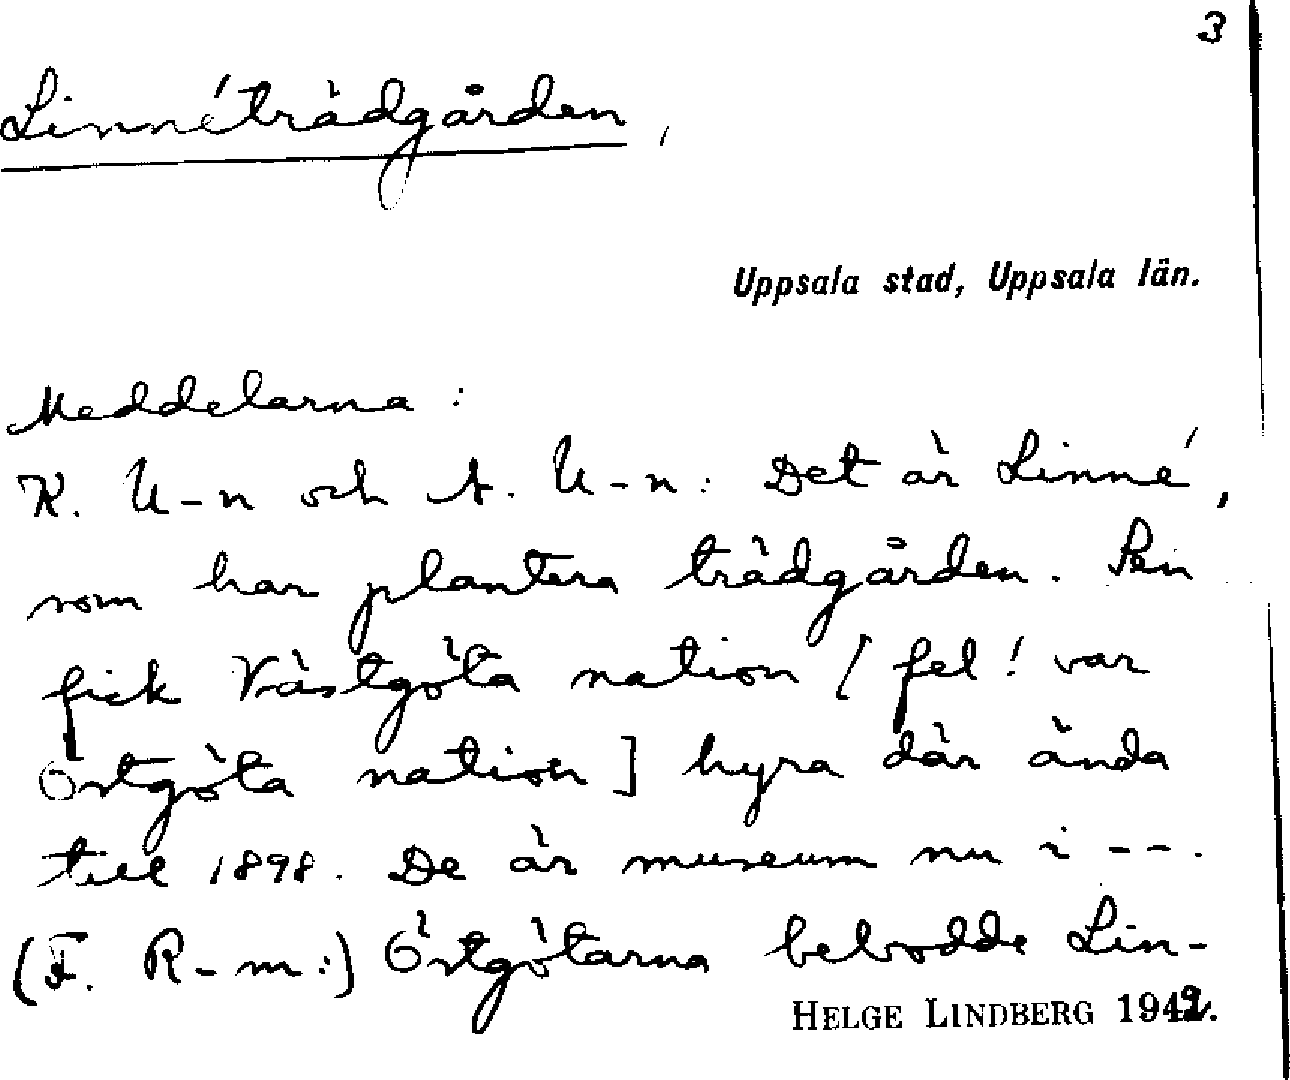 3
Linnéträdgården,
Uppsala stad, Uppsala län.
Meddelarna:
K. U-n och A. U-n: Det är Linné,
som har plantera trädgården. Sen
fick Västgöta nation [fel! var
Östgöta nation] hyra där ända
till 1898. De är museum nu i --.
(F. R-m:) Östgötarna bebodde Lin-
HELGE LINDBERG 1942.